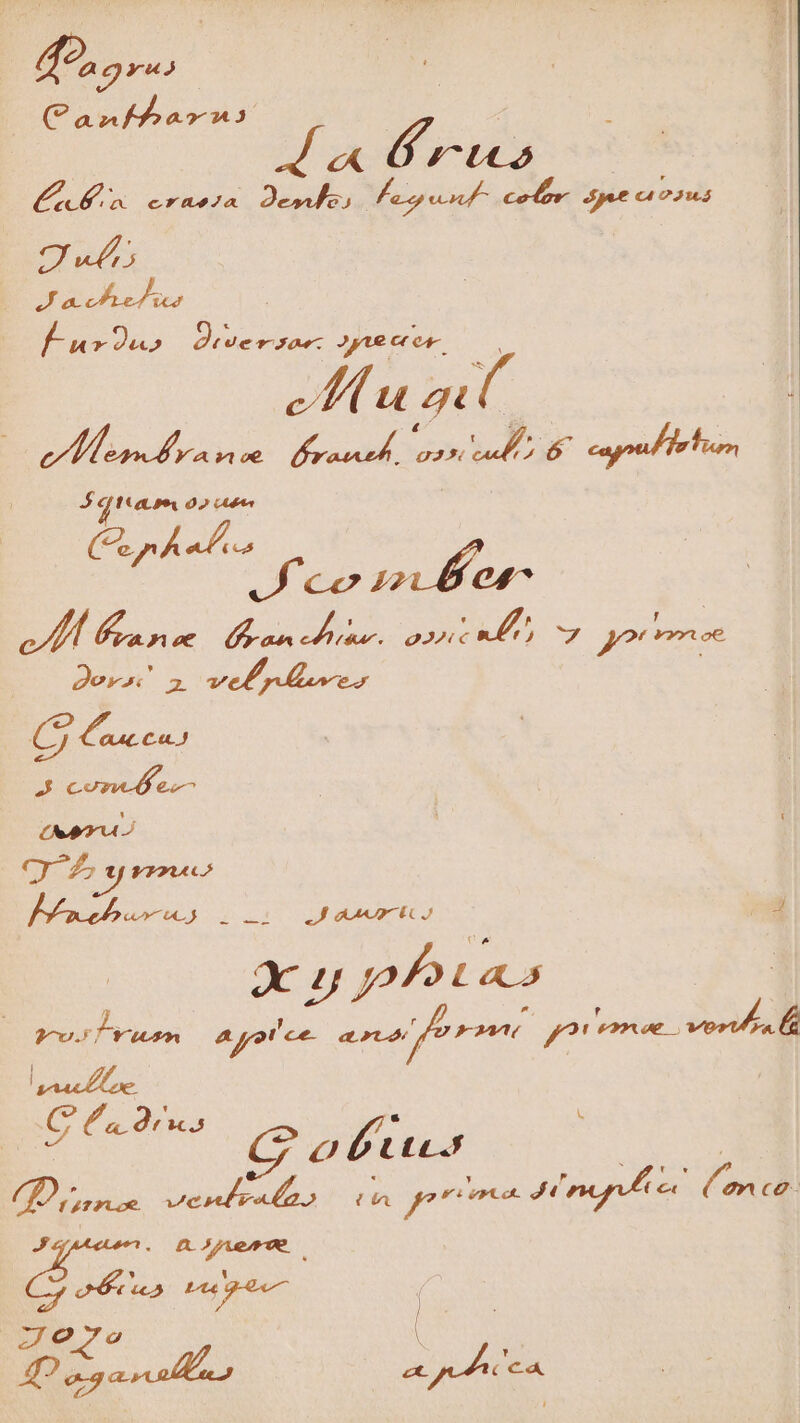 Pagrus
Cantharus
Labrus
Labia crassa dentes tegunt color speciosus
Julis
Sachetus
turdus diversar. specier.
Mugil
Membranæ branch. ossiculis 6
Squam osum
Cephalus
Scomber
Mbranæ branchiar. ossiculis 7 pinnæ
dorsi 2 vel plures
Glaucus
Scomber
Thymus
Saurus
Xyphias
rostrum apice ensiformi pinnæ ventrali
nullæ
Gladius
Gobius
Pinnæ ventrales in prima simplici Conco
Squam. asperæ
Gobius niger
Jozo
Paganellus aphica